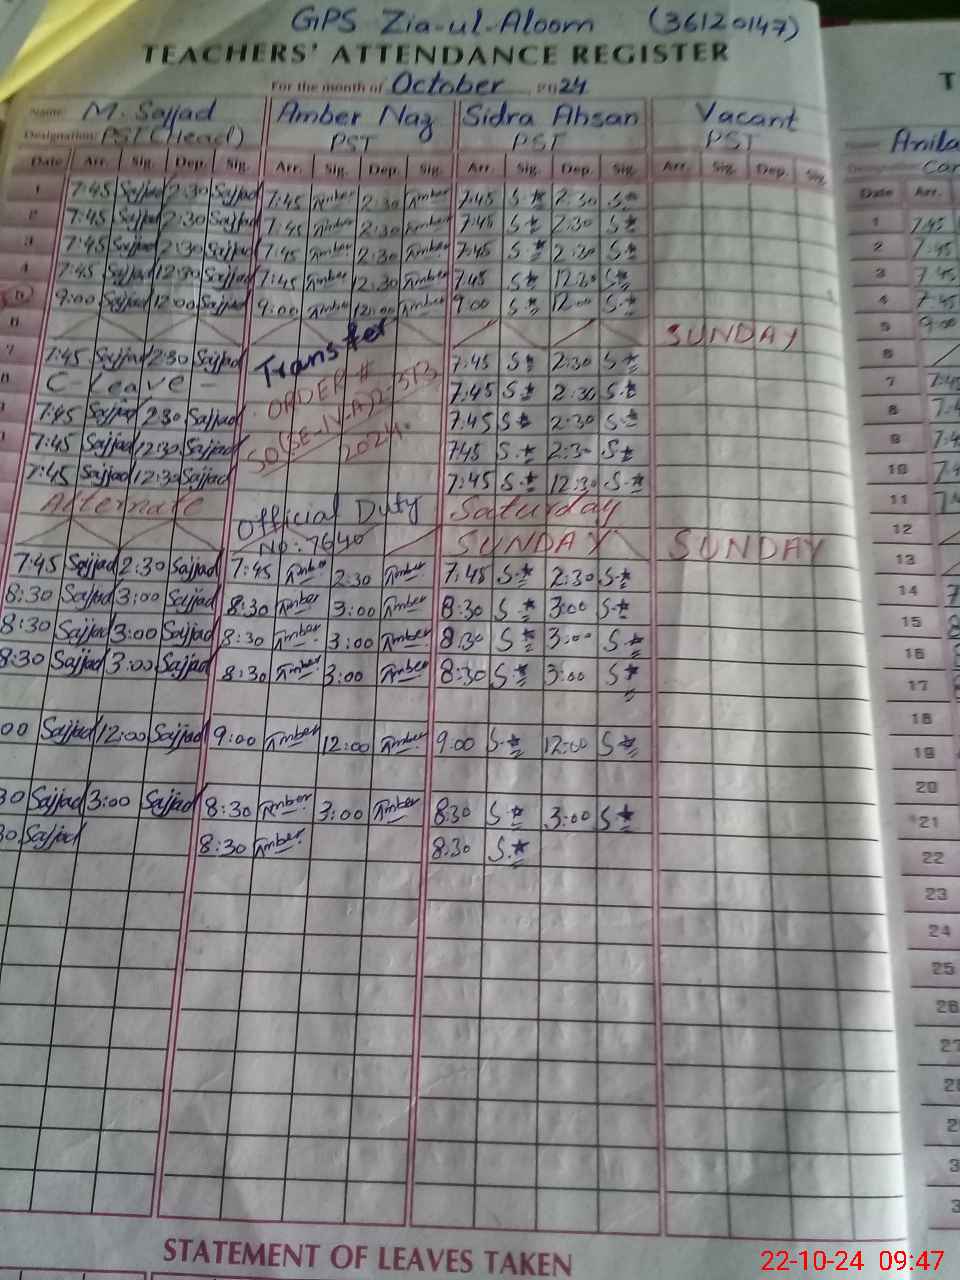 GPS Zia-ul-Aloom (36120147)
TEACHERS' ATTENDANCE REGISTER
For the month of October 2024
Name: M. Sajjad Amber Naz Sidra Ahsan Vacant
Designation: PST (Head) PST PST PST
Date Arr. Sig. Dep. Sig. Arr. Sig. Dep. Sig. Arr. Sig. Dep. Sig. Arr. Sig. Dep. Sig.
1 7:45 Sajjad 2:30 Sajjad 7:45 Amber 2:30 Amber 7:45 S. 2:30 S.
2 7:45 Sajjad 2:30 Sajjad 7:45 Amber 2:30 Amber 7:45 S. 2:30 S.
3 7:45 Sajjad 2:30 Sajjad 7:45 Amber 2:30 Amber 7:45 S. 2:30 S.
4 7:45 Sajjad 12:30 Sajjad 7:45 Amber 12:30 Amber 7:45 S. 12:30 S.
9:00 Sajjad 12:00 Sajjad 9:00 Amber 12:00 Amber 9:00 S. 12:00 S.
SUNDAY
7 7:45 Sajjad 2:30 Sajjad Transfer 7:45 S. 2:30 S.
C-Leave - ORDER # 7:45 S. 2:30 S.
7:45 Sajjad 2:30 Sajjad SO(SE-IV-A)2-573 7:45 S. 2:30 S.
7:45 Sajjad 12:30 Sajjad 2024. 7:45 S. 2:30 S.
7:45 Sajjad 12:30 Sajjad 7:45 S. 12:30 S.
Alternate Official Duty Saturday
No: 7640 SUNDAY SUNDAY
7:45 Sajjad 2:30 Sajjad 7:45 Amber 2:30 Amber 7:45 S. 2:30 S.
8:30 Sajjad 3:00 Sajjad 8:30 Amber 3:00 Amber 8:30 S. 3:00 S.
8:30 Sajjad 3:00 Sajjad 8:30 Amber 3:00 Amber 8:30 S. 3:00 S.
8:30 Sajjad 3:00 Sajjad 8:30 Amber 3:00 Amber 8:30 S. 3:00 S.
00 Sajjad 12:00 Sajjad 9:00 Amber 12:00 Amber 9:00 S. 12:00 S.
30 Sajjad 3:00 Sajjad 8:30 Amber 3:00 Amber 8:30 S. 3:00 S.
30 Sajjad 8:30 Amber 8:30 S.
STATEMENT OF LEAVES TAKEN
T
Anila
Date Arr.
1 7:45
2 7:45
3 7:45
4 7:45
5 9:00
6
7 7:45
8 7:4
9 7:4
10 7:4
11
12
13
14
15
16
17
18
19
20
21
22
23
24
25
26
27
22-10-24 09:47